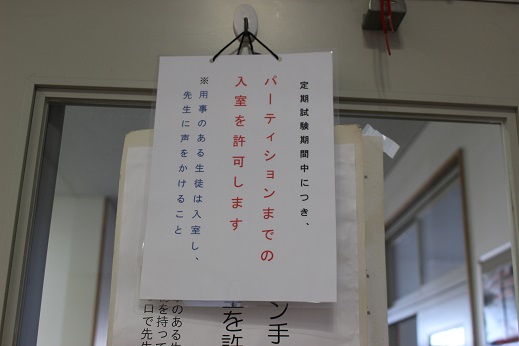 定期試験期間中につき、
パーティションまでの
入室を許可します
※用事のある生徒は入室し、
先生に声をかけること
ン手
を許
のある生
を持って
ロで先生